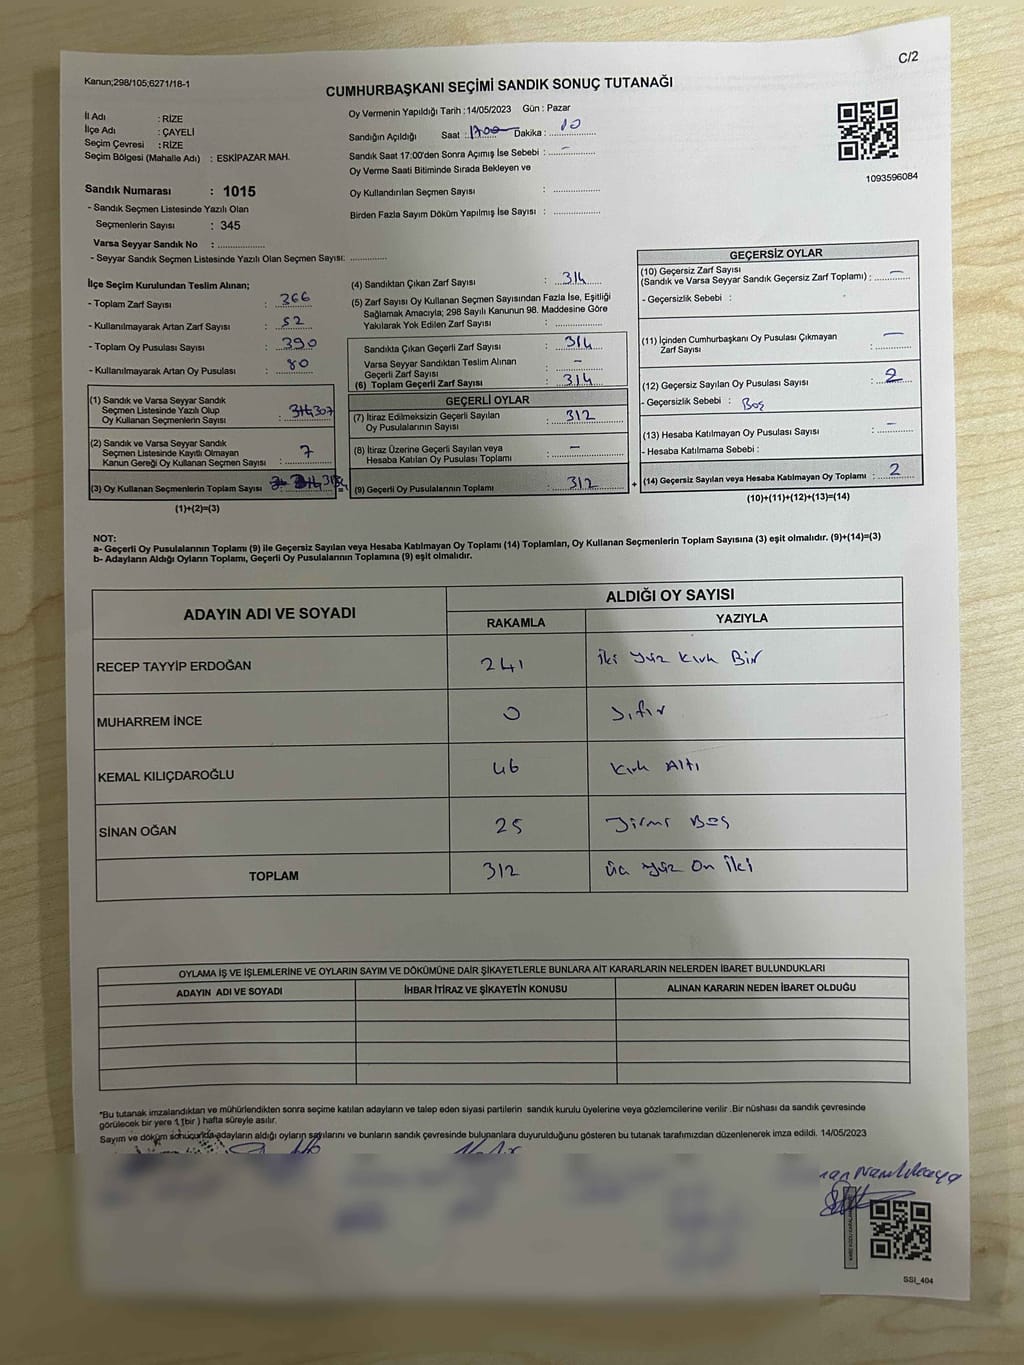 C/2
Kanun;298/105;6271/18-1
CUMHURBAŞKANI SEÇİMİ SANDIK SONUÇ TUTANAĞI
İl Adı : RİZE
İlçe Adı : ÇAYELİ
Seçim Çevresi : RİZE
Seçim Bölgesi (Mahalle Adı) : ESKİPAZAR MAH.
Sandık Numarası : 1015
- Sandık Seçmen Listesinde Yazılı Olan
Seçmenlerin Sayısı : 345
Varsa Seyyar Sandık No : ..................
- Seyyar Sandık Seçmen Listesinde Yazılı Olan Seçmen Sayısı: .............
Oy Vermenin Yapıldığı Tarih : 14/05/2023 Gün : Pazar
Sandığın Açıldığı Saat : 1700 Dakika : 10
Sandık Saat 17:00'den Sonra Açımış İse Sebebi : –
Oy Verme Saati Bitiminde Sırada Bekleyen ve
Oy Kullandırılan Seçmen Sayısı : ................
Birden Fazla Sayım Döküm Yapılmış İse Sayısı : ................
1093596084
İlçe Seçim Kurulundan Teslim Alınan;
- Toplam Zarf Sayısı : 366
- Kullanılmayarak Artan Zarf Sayısı : 52
- Toplam Oy Pusulası Sayısı : 390
- Kullanılmayarak Artan Oy Pusulası : 80
(1) Sandık ve Varsa Seyyar Sandık
Seçmen Listesinde Yazılı Olup
Oy Kullanan Seçmenlerin Sayısı : 307
(2) Sandık ve Varsa Seyyar Sandık
Seçmen Listesinde Kayıtlı Olmayan
Kanun Gereği Oy Kullanan Seçmen Sayısı : 7
(3) Oy Kullanan Seçmenlerin Toplam Sayısı
(1)+(2)=(3)
(4) Sandıktan Çıkan Zarf Sayısı : 314
(5) Zarf Sayısı Oy Kullanan Seçmen Sayısından Fazla İse, Eşitliği
Sağlamak Amacıyla; 298 Sayılı Kanunun 98. Maddesine Göre
Yakılarak Yok Edilen Zarf Sayısı : ................
Sandıkta Çıkan Geçerli Zarf Sayısı : 314
Varsa Seyyar Sandıktan Teslim Alınan
Geçerli Zarf Sayısı : –
(6) Toplam Geçerli Zarf Sayısı : 314
GEÇERLİ OYLAR
(7) İtiraz Edilmeksizin Geçerli Sayılan
Oy Pusulalarının Sayısı : 312
(8) İtiraz Üzerine Geçerli Sayılan veya
Hesaba Katılan Oy Pusulası Toplamı : –
(9) Geçerli Oy Pusulalarının Toplamı : 312
GEÇERSİZ OYLAR
(10) Geçersiz Zarf Sayısı
(Sandık ve Varsa Seyyar Sandık Geçersiz Zarf Toplamı) : –
- Geçersizlik Sebebi :
(11) İçinden Cumhurbaşkanı Oy Pusulası Çıkmayan
Zarf Sayısı : –
(12) Geçersiz Sayılan Oy Pusulası Sayısı : 2
- Geçersizlik Sebebi : Boş
(13) Hesaba Katılmayan Oy Pusulası Sayısı : –
- Hesaba Katılmama Sebebi :
+ (14) Geçersiz Sayılan veya Hesaba Katılmayan Oy Toplamı : 2
(10)+(11)+(12)+(13)=(14)
NOT:
a- Geçerli Oy Pusulalarının Toplamı (9) ile Geçersiz Sayılan veya Hesaba Katılmayan Oy Toplamı (14) Toplamları, Oy Kullanan Seçmenlerin Toplam Sayısına (3) eşit olmalıdır. (9)+(14)=(3)
b- Adayların Aldığı Oyların Toplamı, Geçerli Oy Pusulalarının Toplamına (9) eşit olmalıdır.
ADAYIN ADI VE SOYADI
ALDIĞI OY SAYISI
RAKAMLA YAZIYLA
RECEP TAYYİP ERDOĞAN 241 iki yüz kırk Bir
MUHARREM İNCE 0 Sıfır
KEMAL KILIÇDAROĞLU 46 kırk Altı
SİNAN OĞAN 25 Yirmi Beş
TOPLAM 312 üç yüz On iki
OYLAMA İŞ VE İŞLEMLERİNE VE OYLARIN SAYIM VE DÖKÜMÜNE DAİR ŞİKAYETLERLE BUNLARA AİT KARARLARIN NELERDEN İBARET BULUNDUKLARI
ADAYIN ADI VE SOYADI İHBAR İTİRAZ VE ŞİKAYETİN KONUSU ALINAN KARARIN NEDEN İBARET OLDUĞU
*Bu tutanak imzalandıktan ve mühürlendikten sonra seçime katılan adayların ve talep eden siyasi partilerin sandık kurulu üyelerine veya gözlemcilerine verilir .Bir nüshası da sandık çevresinde
görülecek bir yere 1 (bir ) hafta süreyle asılır.
Sayım ve döküm sonucunda adayların aldığı oyların sayılarını ve bunların sandık çevresinde bulunanlara duyurulduğunu gösteren bu tutanak tarafımızdan düzenlenerek imza edildi. 14/05/2023
SSI_404